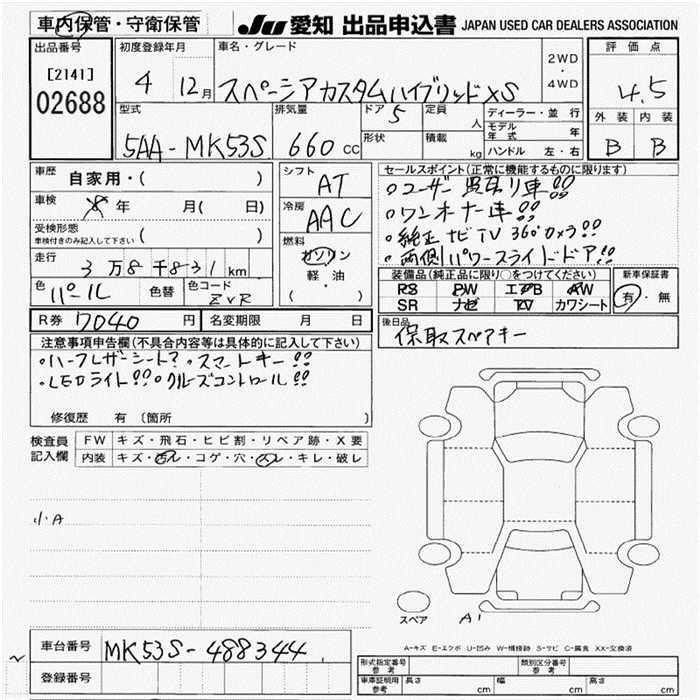 車内保管・守衛保管
JU 愛知 出品申込書 JAPAN USED CAR DEALERS ASSOCIATION
出品番号
[2141]
02688
初度登録年月
4 12月
車名・グレード
スペーシアカスタムハイブリッドXS
2WD
・
4WD
評価点
4.5
外装 内装
B B
型式
5AA-MK53S
排気量
660 CC
ドア 5
形状
定員 人
積載 kg
ディーラー・並行
モデル年式 年
ハンドル 左・右
車歴 自家用・( )
車検 年 月( 日)
受検形態
車検付きのみ記入して下さい ( )
走行 3万8千831km
色 パール 色替 色コード ZVR
シフト AT
冷房 AAC
燃料
ガソリン
軽・油
( )
セールスポイント(正常に機能するものに限ります)
・ユーザー買取り車!!
・ワンオーナー車!!
・純正ナビTV 360°カメラ!!
・両側パワースライドドア!!
装備品(純正品に限り○をつけてください)
RS PW エアB AW
SR ナビ TV カワシート
新車保証書
有・無
R券 7040円 名変期限 月 日
後日品
保取スペアキー
注意事項申告欄(不具合内容等は具体的に記入して下さい)
・ハーフレザーシート? ・スマートキー!!
・LEDライト!! ・クルーズコントロール!!
修復歴 有 〔箇所 〕
検査員
記入欄
FW キズ・飛石・ヒビ割・リペア跡・X要
内装 キズ・汚レ・コゲ・穴・スレ・キレ・破レ
小A
スペア
A1
A-キズ E-エクボ U-凹み W-補修跡 S-サビ C-腐食 XX-交換済
車台番号 MK53S-488344
登録番号
形式指定番号
参考
類別区分番号
参考
車庫証明用
参考
長さ cm 幅 cm 高さ cm